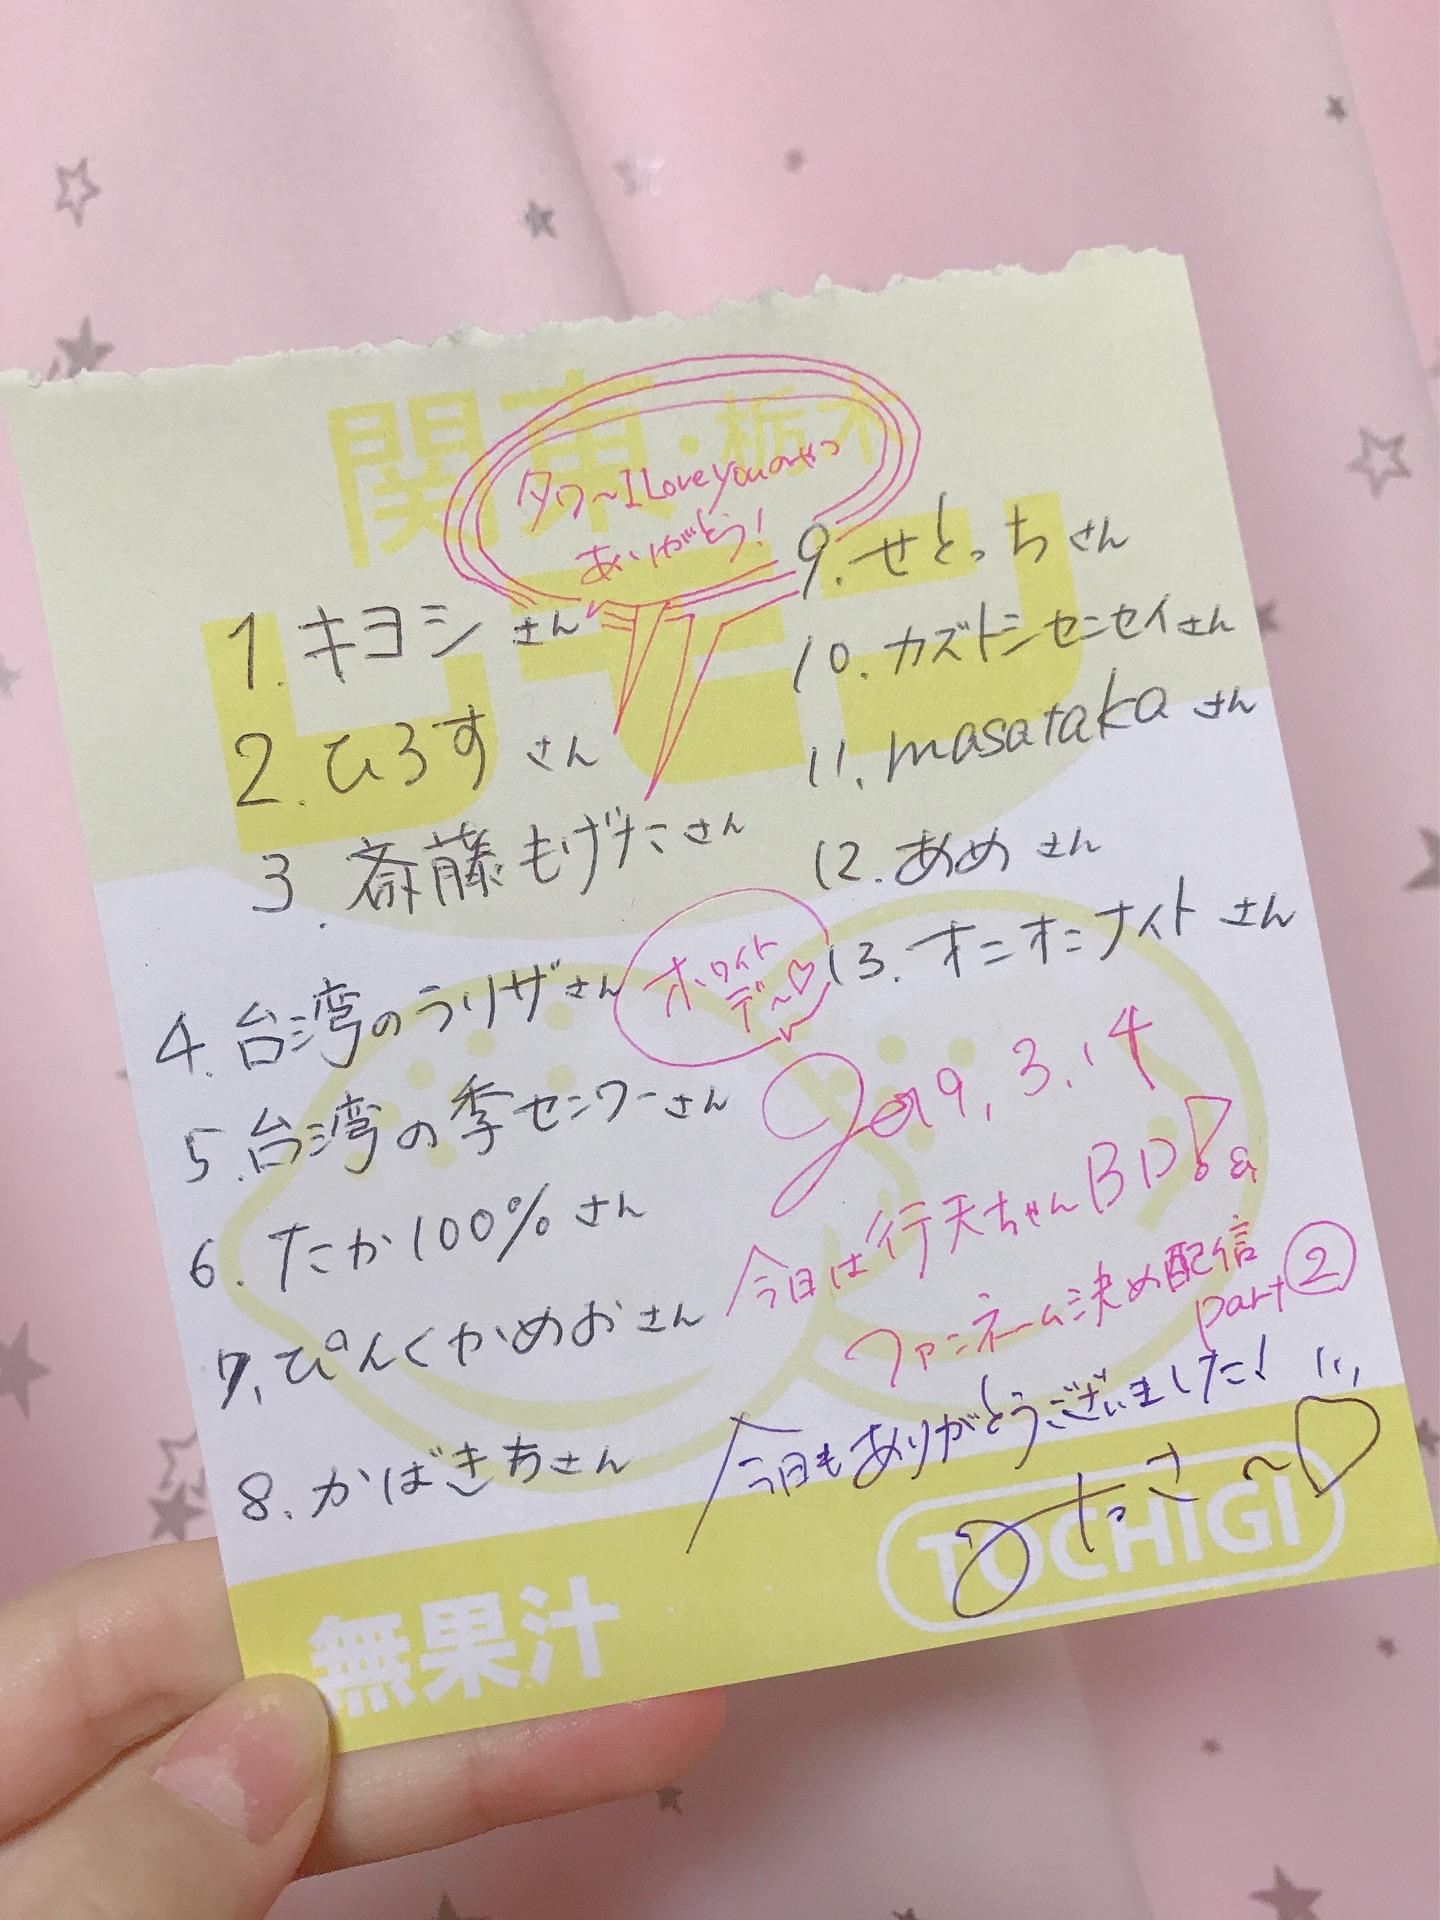 関東・栃木
レモン
タワ〜I Love youのやつ
ありがとう!
1. キヨシさん
2. ひろすさん
3. 斎藤もげたさん
4. 台湾のラリザさん
5. 台湾の季センワーさん
6. たか100%さん
7. ぴんくかめおさん
8. かばきちさん
9. せとっちさん
10. カズトシセンセイさん
11. masatakaさん
12. あめさん
13. オニオニナイトさん
ホワイト
デ〜♡
2019.3.14
今日は行天ちゃんBD!&
ファンネーム決め配信
part②
今日もありがとうございました!
〜♡
無果汁
TOCHIGI